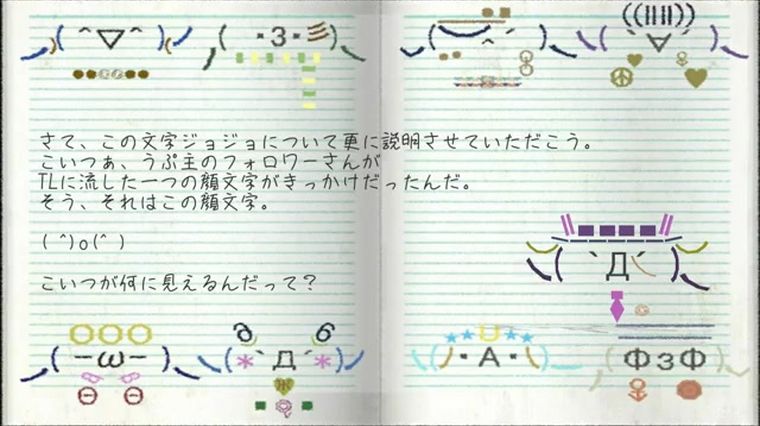 さて、この文字ジョジョについて更に説明させていただこう。
こいつぁ、うぷ主のフォロワーさんが
TLに流した一つの顔文字がきっかけだったんだ。
そう、それはこの顔文字。
( ^)o(^ )
こいつが何に見えるんだって？